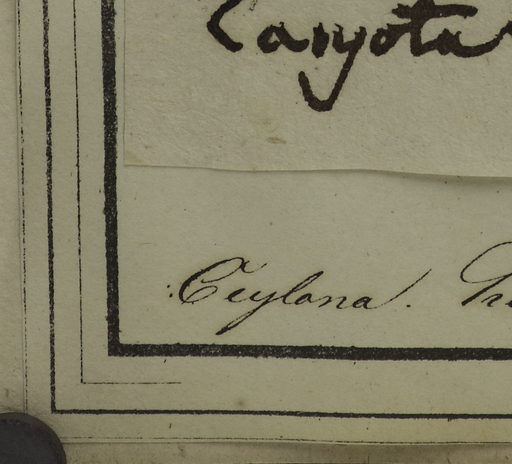 Caryota
Ceylona.